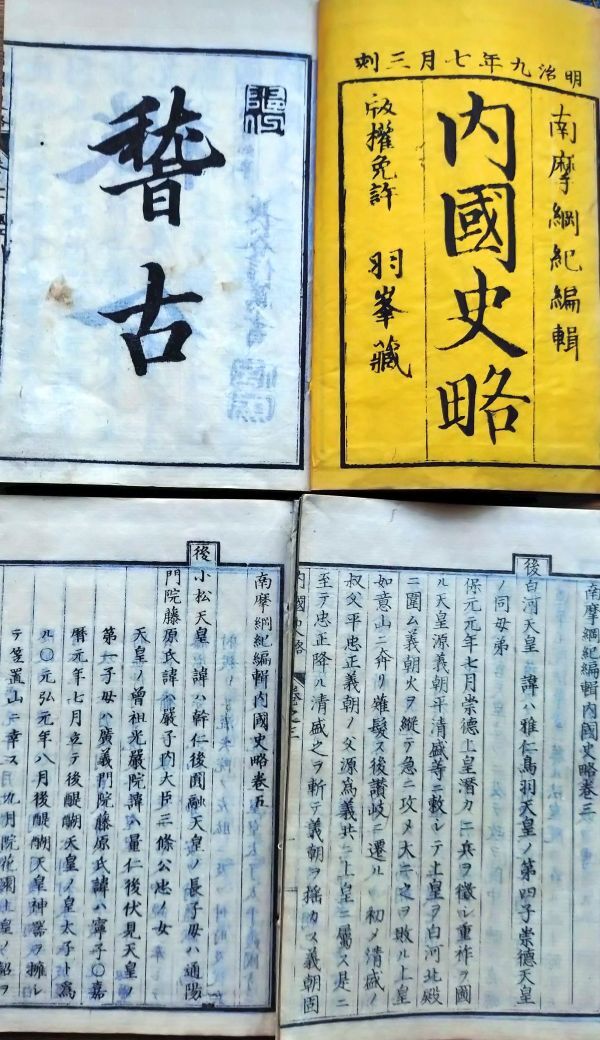 明治九年七月三刻
南摩綱紀編輯
内國史略
版權免許　羽峯藏
稽古
南摩綱紀編輯内國史略卷三
後白河天皇　諱ハ雅仁鳥羽天皇ノ第四子崇德天皇
ノ同母弟
保元元年七月崇德上皇潛カニ兵ヲ徴シ重祚ヲ圖
ル天皇源義朝平清盛等ニ敕シテ上皇ヲ白河北殿
ニ圍ム義朝火ヲ縱テ急ニ攻メ大ニ之ヲ敗ル上皇
如意山ニ奔リ薙髮ス後讚岐ニ遷ル〇初メ清盛ノ
叔父平忠正義朝ノ父源爲義共ニ上皇ニ屬ス是ニ
至テ忠正降ル清盛之ヲ斬テ義朝ヲ搖カス義朝固
内國史略　卷之三
南摩綱紀編輯内國史略卷五
後小松天皇　諱ハ幹仁後圓融天皇ノ長子母ハ通陽
門院藤原氏諱ハ嚴子内大臣三條公忠ノ女
天皇ノ曾祖光嚴院諱ハ量仁後伏見天皇ノ
第一子母ハ廣義門院藤原氏諱ハ寧子〇嘉
曆元年七月立テ後醍醐天皇ノ皇太子ト爲
ル〇元弘元年八月後醍醐天皇神器ヲ擁シ
テ笠置山ニ幸ス九月院花園上皇ノ詔ヲ